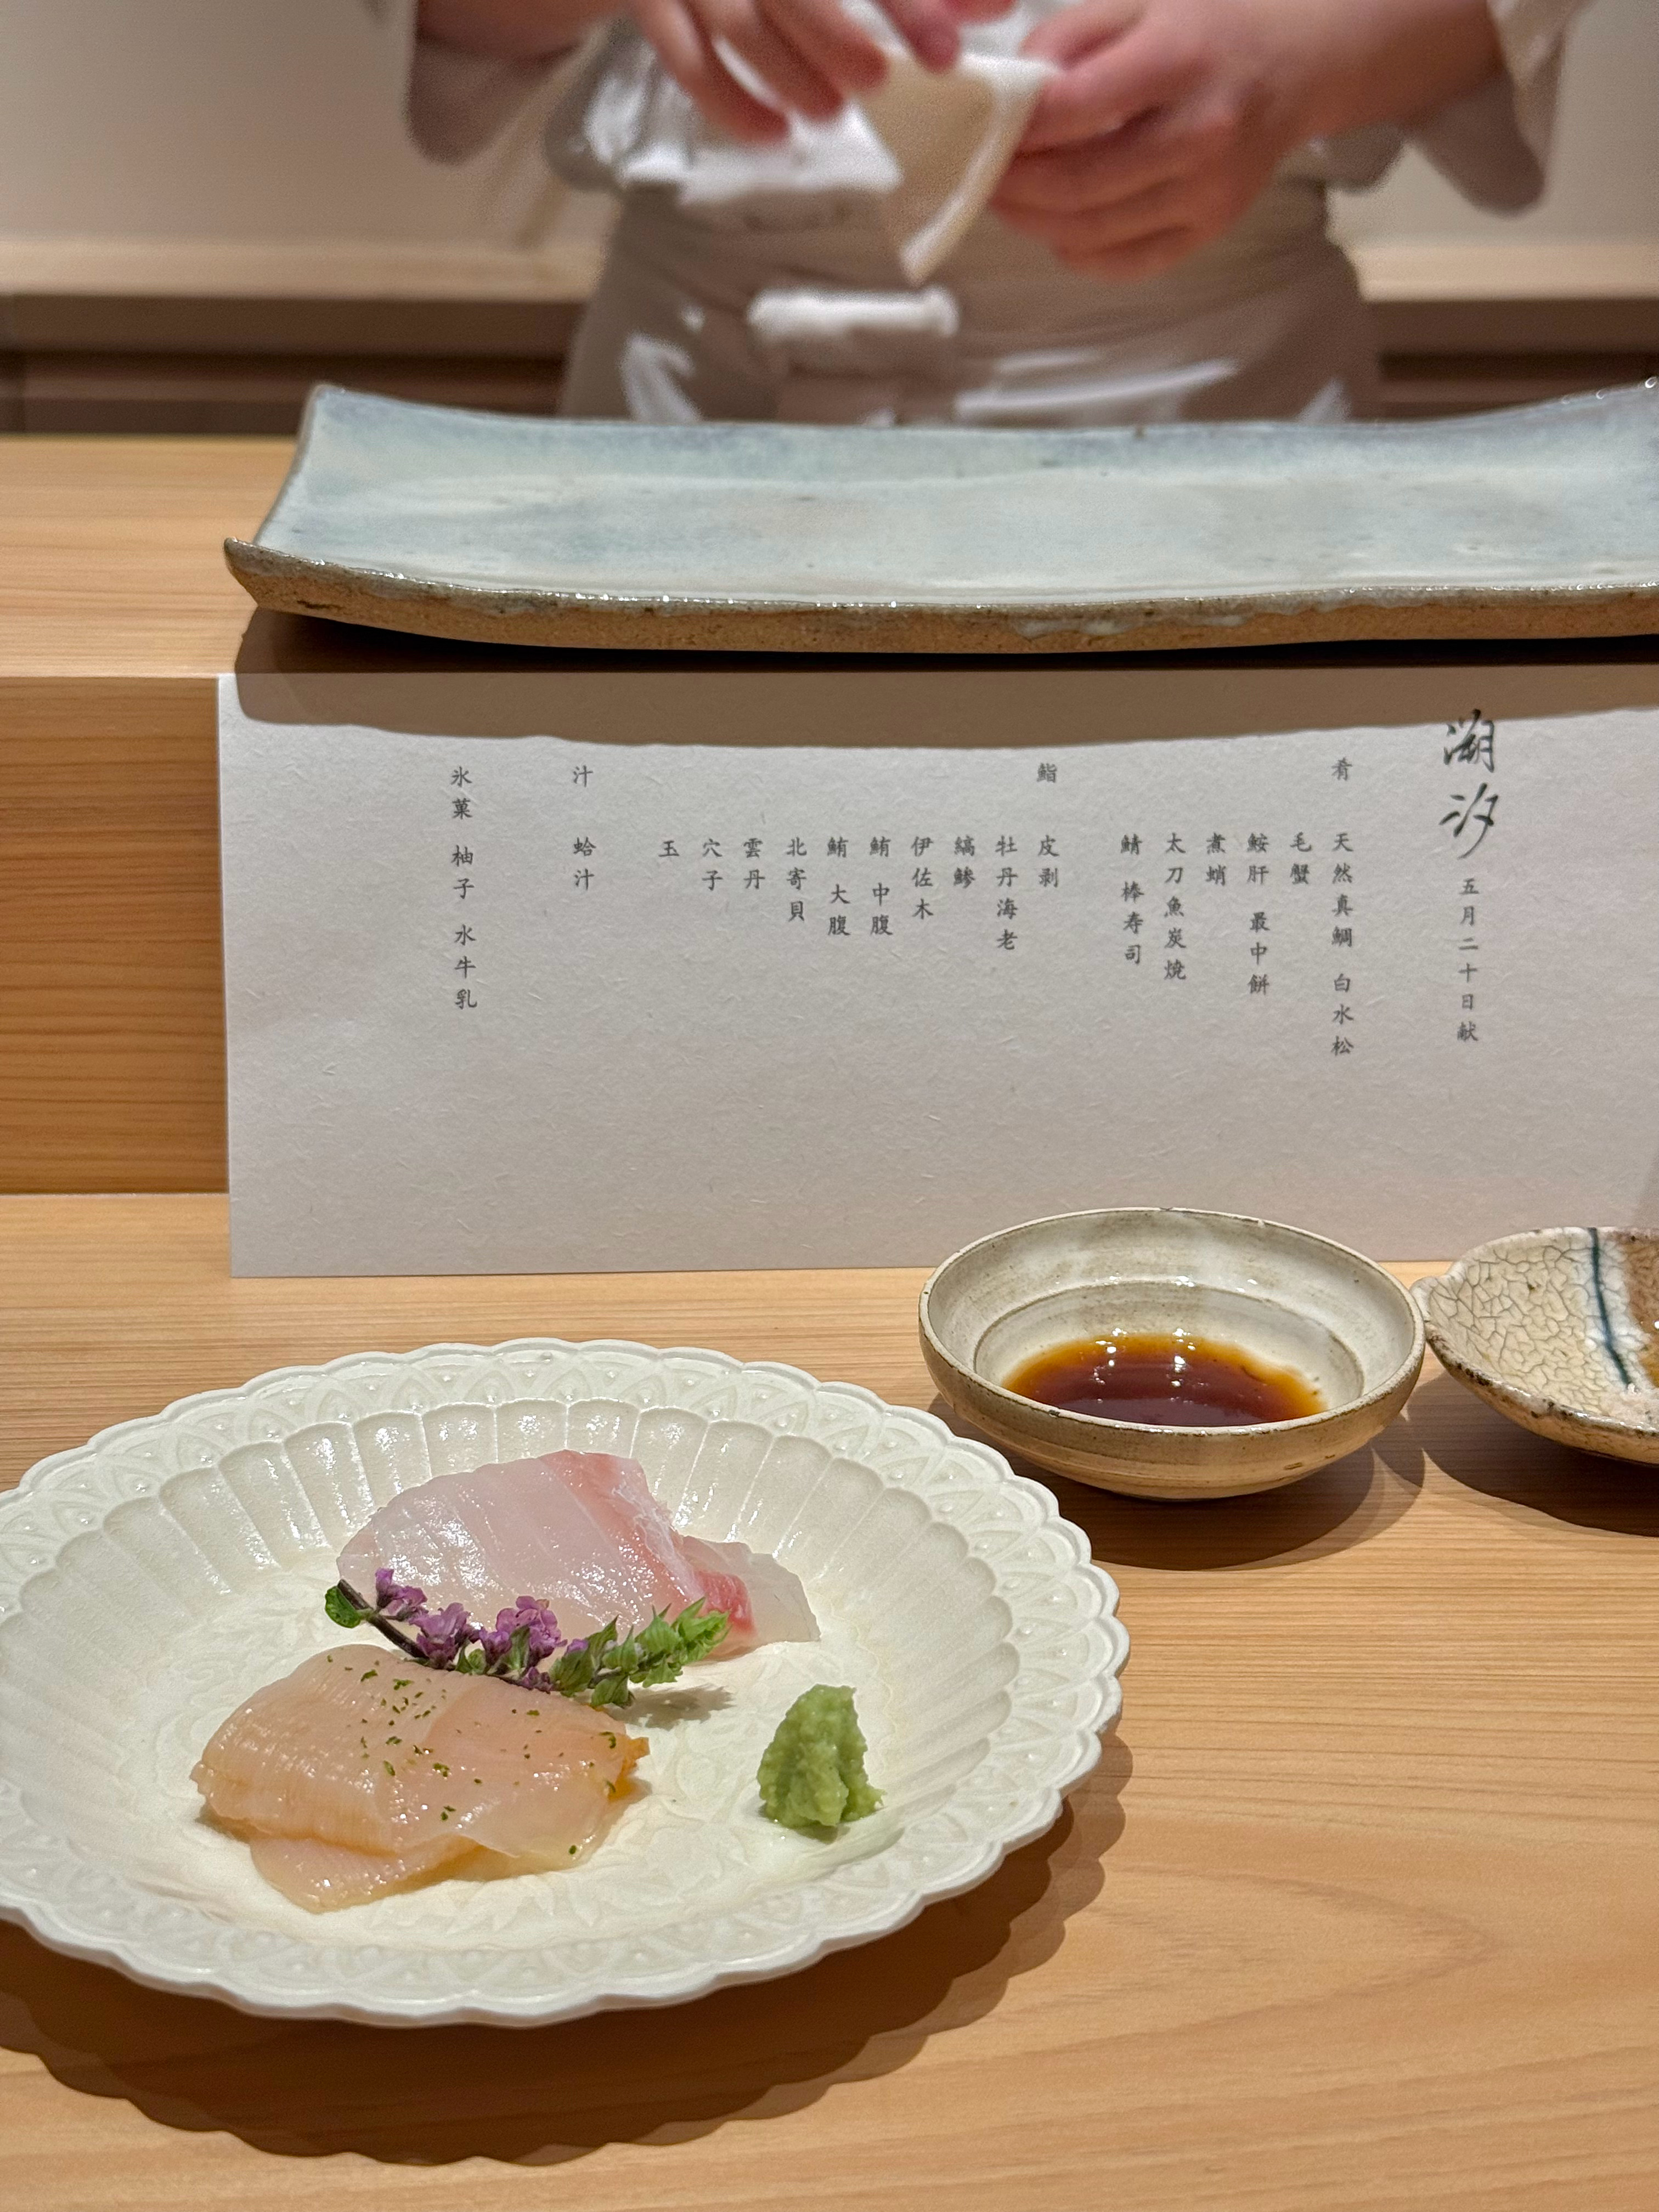 溯汐 五月二十日献
肴 天然真鯛 白水松
毛蟹
鮟肝 最中餅
煮蛸
太刀魚炭焼
鯖 棒寿司
鮨 皮剥
牡丹海老
縞鯵
伊佐木
鮪 中腹
鮪 大腹
北寄貝
雲丹
穴子
玉
汁 蛤汁
氷菓 柚子 水牛乳